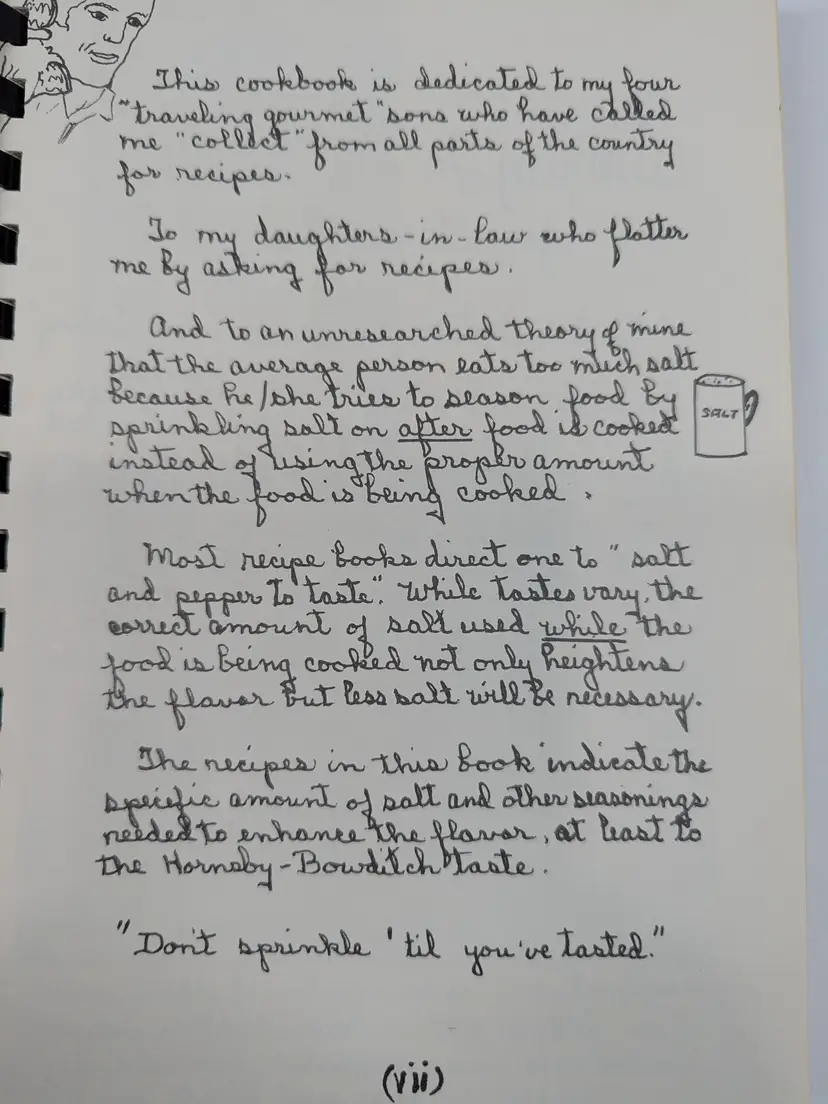 This cookbook is dedicated to my four
"traveling gourmet" sons who have called
me "collect" from all parts of the country
for recipes.
To my daughters-in-law who flatter
me by asking for recipes.
And to an unresearched theory of mine
that the average person eats too much salt
because he/she tries to season food by
sprinkling salt on after food is cooked
instead of using the proper amount
when the food is being cooked.
SALT
Most recipe books direct one to "salt
and pepper to taste". While tastes vary, the
correct amount of salt used while the
food is being cooked not only heightens
the flavor but less salt will be necessary.
The recipes in this book indicate the
specific amount of salt and other seasonings
needed to enhance the flavor, at least to
the Hornsby-Bowditch taste.
"Don't sprinkle 'til you've tasted."
(vii)